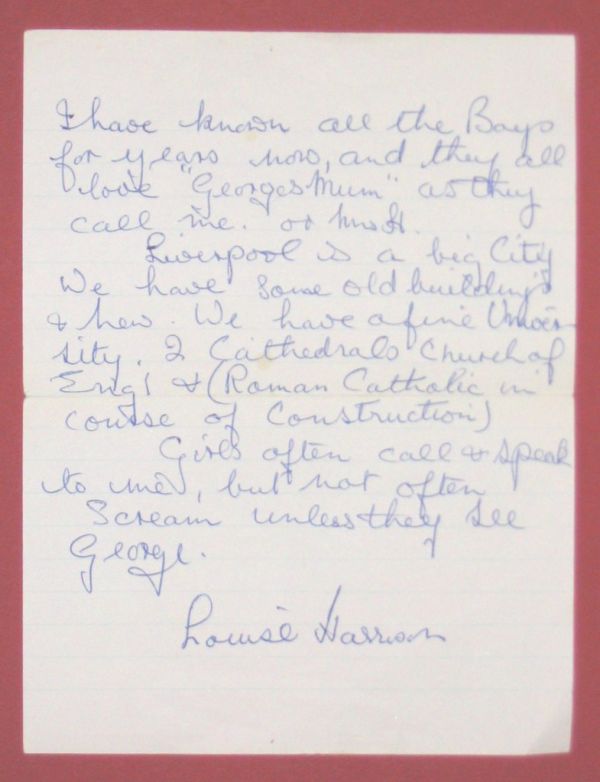 I have known all the Boys
for years now, and they all
love "Georges Mum" as they
call me. or Mrs H.
Liverpool is a big City
We have some old buildings
& new. We have a fine Univer
sity. 2 Cathedrals Church of
Engl & (Roman Catholic in
course of Construction)
Girls often call & speak
to me, but not often
Scream unless they see
George.
Louise Harrison